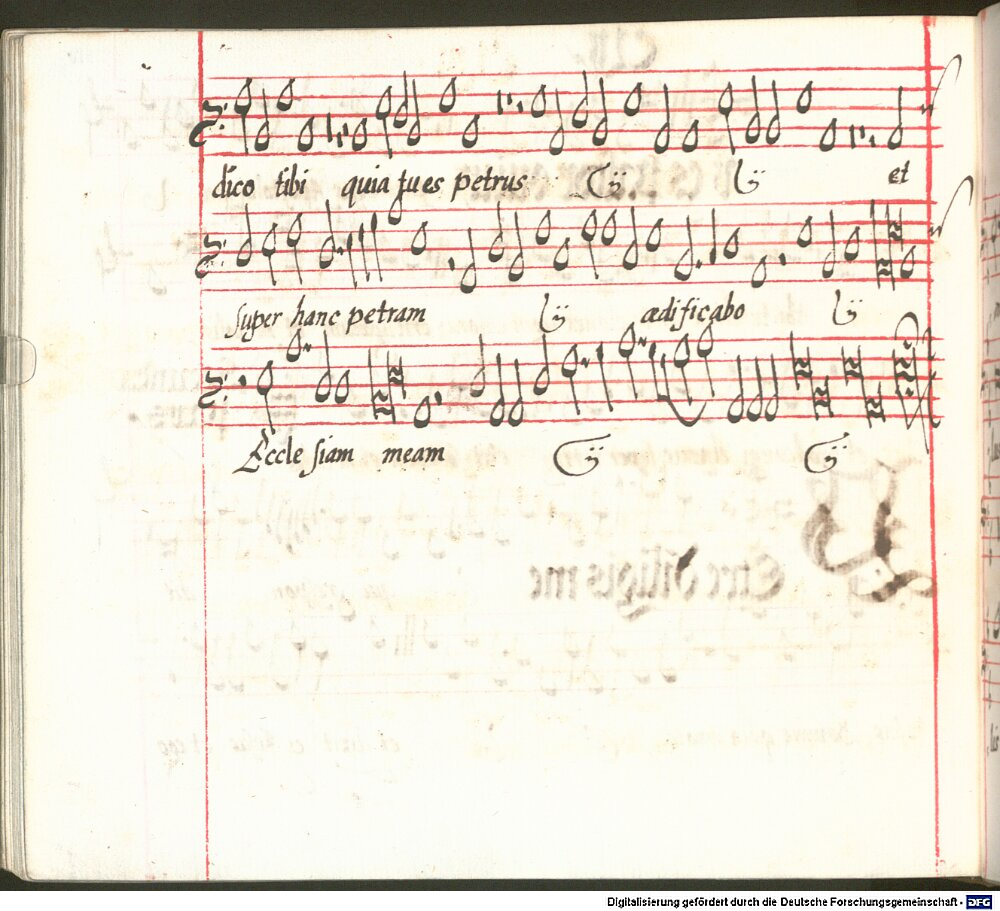 dico tibi quia tu es petrus ij ij et
super hanc petram ij ædificabo ij
Eccle siam meam ij ij
Digitalisierung gefördert durch die Deutsche Forschungsgemeinschaft - DFG